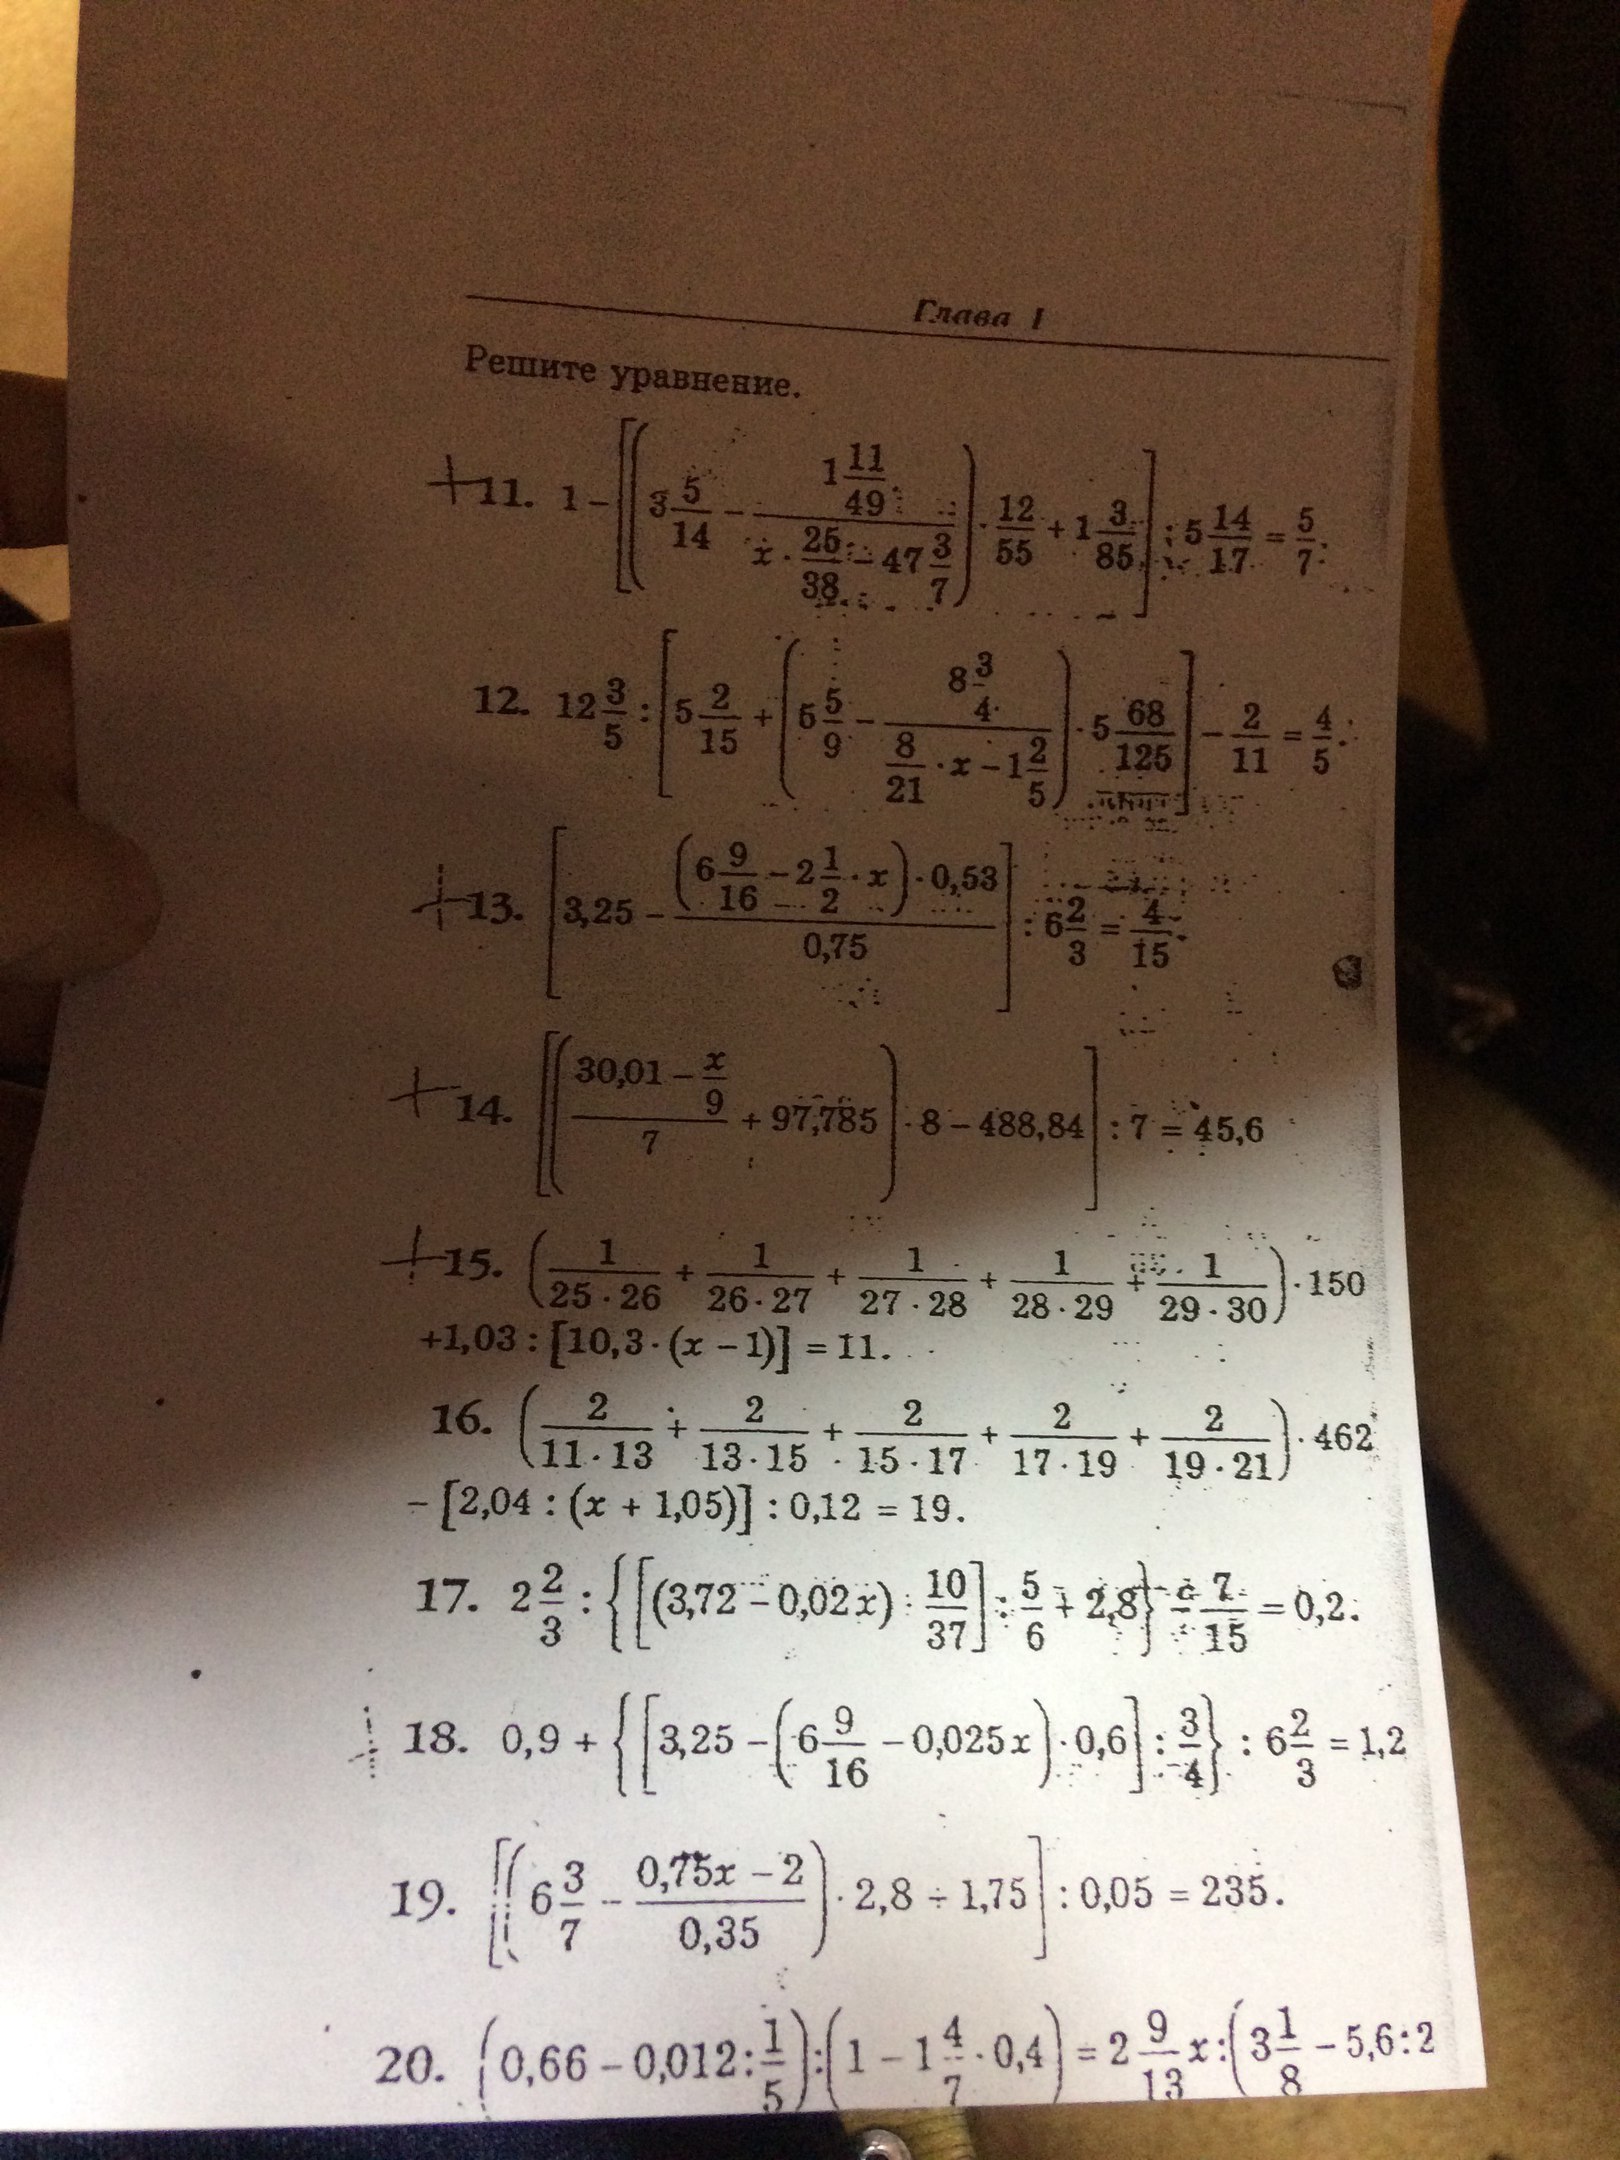 Глава I
Решите уравнение.
11. 1 − [(3 5/14 − (1 11/49)/(x · 25/38 − 47 3/7)) · 12/55 + 1 3/85] : 5 14/17 = 5/7.
12. 12 3/5 : [5 2/15 + (6 5/9 − (8 3/4)/(8/21 · x − 1 2/5)) · 5 68/125] − 2/11 = 4/5.
13. [3,25 − ((6 9/16 − 2 1/2 · x) · 0,53)/0,75] : 6 2/3 = 4/15.
14. [((30,01 − x/9)/7 + 97,785) · 8 − 488,84] : 7 = 45,6
15. (1/(25 · 26) + 1/(26 · 27) + 1/(27 · 28) + 1/(28 · 29) + 1/(29 · 30)) · 150
+1,03 : [10,3 · (x − 1)] = 11.
16. (2/(11 · 13) + 2/(13 · 15) + 2/(15 · 17) + 2/(17 · 19) + 2/(19 · 21)) · 462
− [2,04 : (x + 1,05)] : 0,12 = 19.
17. 2 2/3 : {[(3,72 − 0,02x) · 10/37] : 5/6 + 2,8} − 7/15 = 0,2.
18. 0,9 + {[3,25 − (6 9/16 − 0,025x) · 0,6] : 3/4} : 6 2/3 = 1,2
19. [(6 3/7 − (0,75x − 2)/0,35) · 2,8 ÷ 1,75] : 0,05 = 235.
20. (0,66 − 0,012 : 1/5) : (1 − 1 4/7 · 0,4) = 2 9/13 x : (3 1/8 − 5,6 : 2